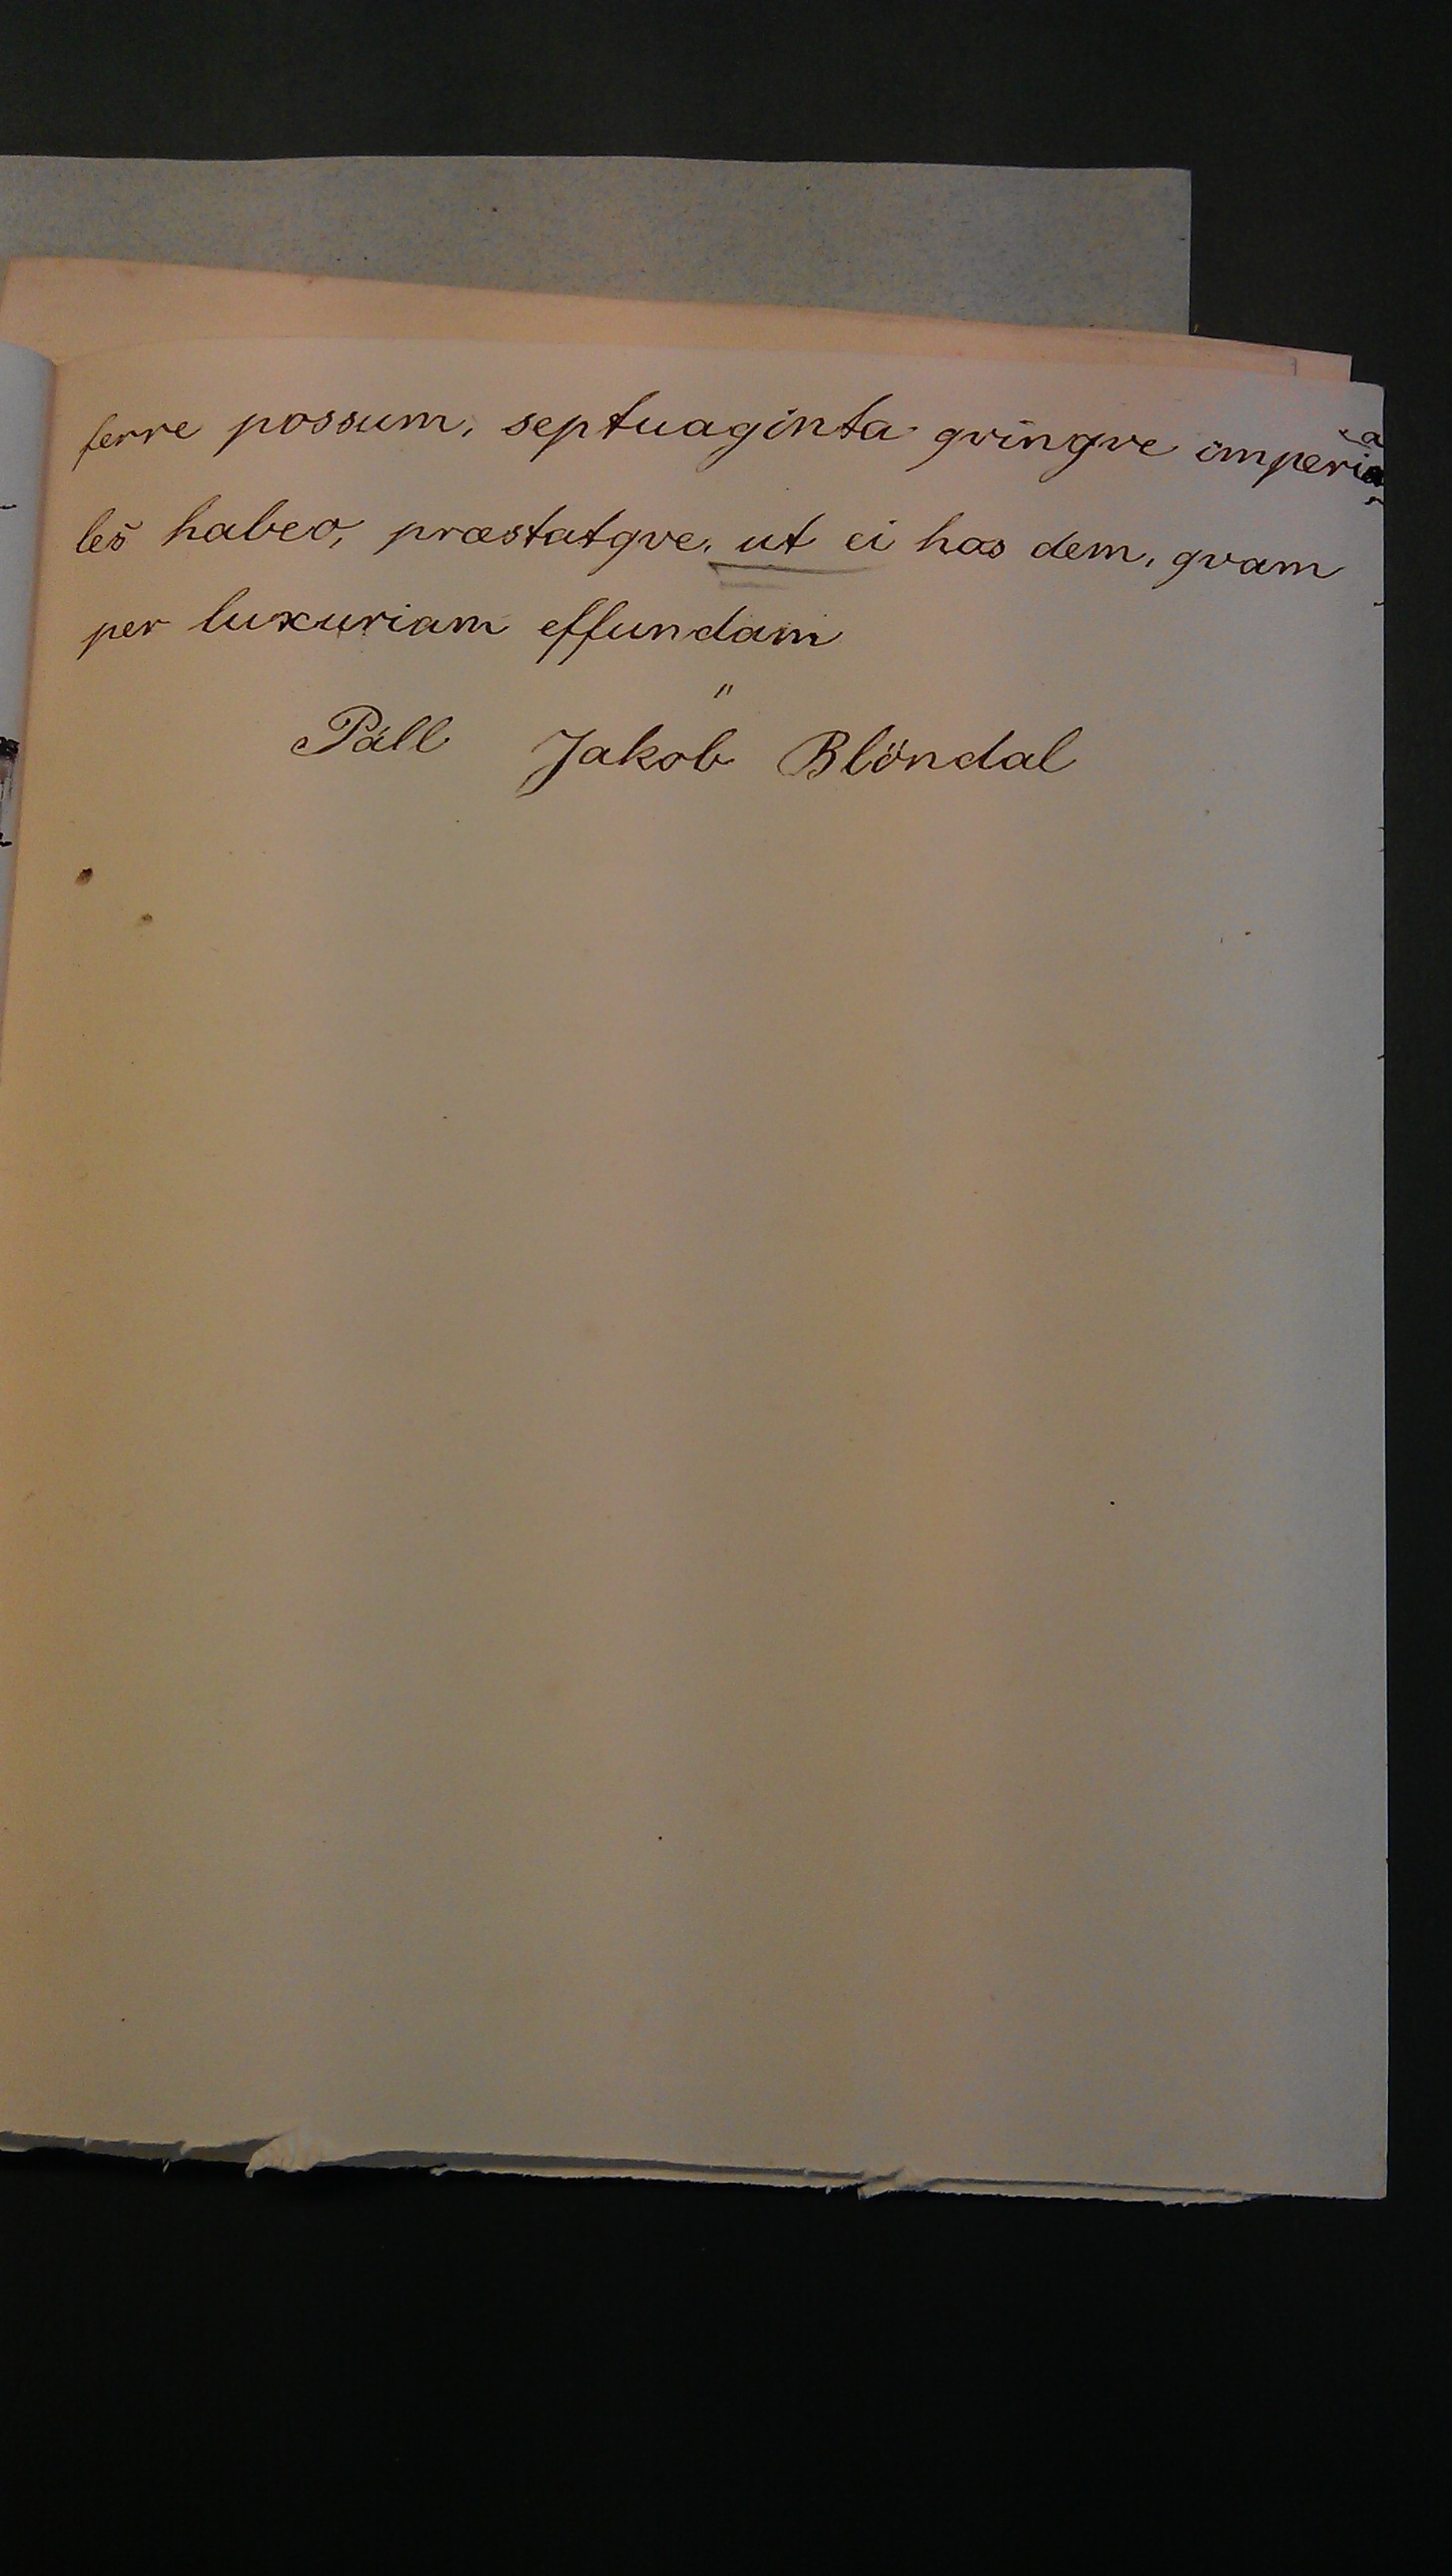 ferre possum, septuaginta qvinqve imperia
les habeo, præstatqve, ut ei has dem, qvam
per luxuriam effundam
"
Páll Jakob Blöndal